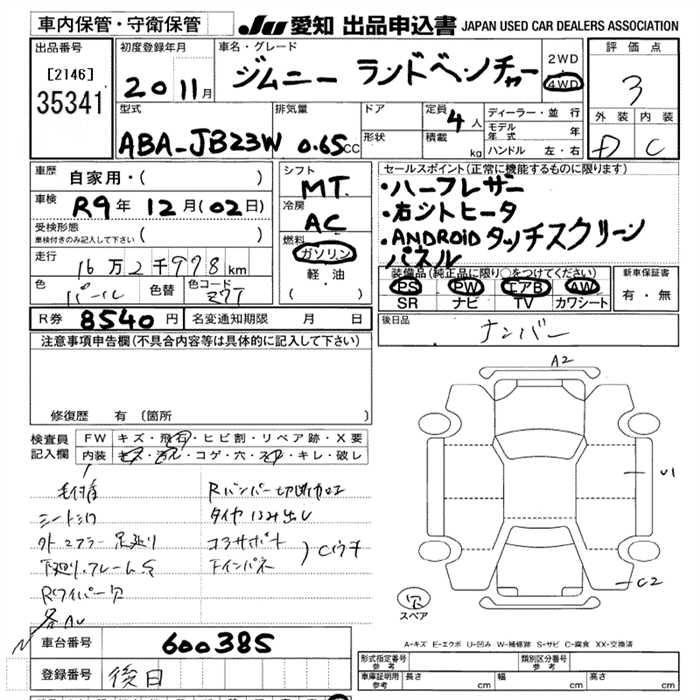 車内保管・守衛保管
JU 愛知 出品申込書 JAPAN USED CAR DEALERS ASSOCIATION
出品番号 初度登録年月 車名・グレード 2WD 評価点
[2146] 20 11月 ジムニー ランドベンチャー 4WD 3
35341
型式 排気量 ドア 定員 4人 ディーラー・並行 外装 内装
ABA-JB23W 0.65CC 形状 積載 kg モデル年式 年 D C
ハンドル 左・右
車歴 自家用・( ) シフト MT セールスポイント(正常に機能するものに限ります)
車検 R9年 12月(02日) 冷房 AC ・ハーフレザー
受検形態 ( ) ・右シートヒータ
車検付きのみ記入して下さい 燃料 ガソリン ・ANDROiDタッチスクリーン
走行 16万2千978km 軽油 パネル
色 パール 色替 色コード ( ) 装備品(純正品に限り○をつけてください) 新車保証書
PS PW エアB AW 有・無
SR ナビ TV カワシート
R券 8540円 名変通知期限 月 日 後日品 ナンバー
注意事項申告欄(不具合内容等は具体的に記入して下さい)
修復歴 有(箇所 )
検査員 FW キズ・飛石・ヒビ割・リペア跡・X要
記入欄 内装 キズ・汚れ・コゲ・穴・スレ・キレ・破レ
Rバンパー切断加工
タイヤはみ出し
外マフラー
コアサポート
下廻り.フレームサ インパネ
Rワイパー欠
A2
U1
C2
穴
スペア
A-キズ E-エクボ U-凹み W-補修跡 S-サビ C-腐食 XX-交換済
車台番号 600385
登録番号 後日
形式指定番号 参考 類別区分番号 参考
車庫証明用 参考 長さ cm 幅 cm 高さ cm